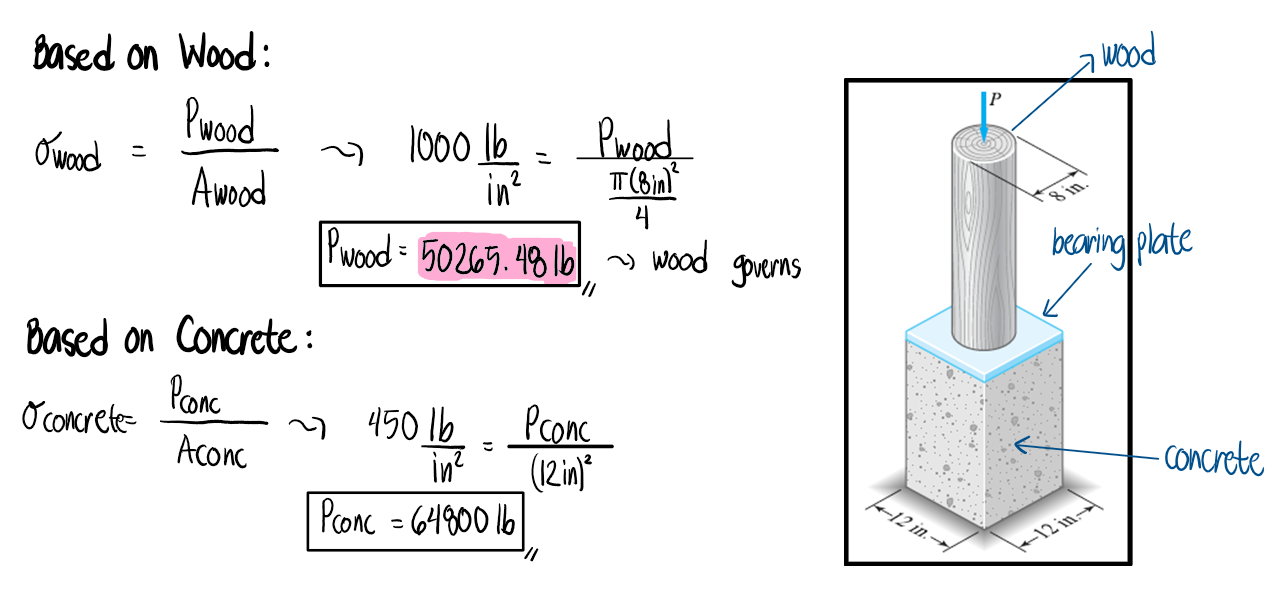 Based on Wood:
σwood = Pwood / Awood ⤳ 1000 lb/in² = Pwood / (π(8in)²/4)
Pwood = 50265.48 lb // ⤳ wood governs
Based on Concrete:
σconcrete = Pconc / Aconc ⤳ 450 lb/in² = Pconc / (12in)²
Pconc = 64800 lb //
wood
P
8 in.
bearing plate
concrete
12 in.
12 in.